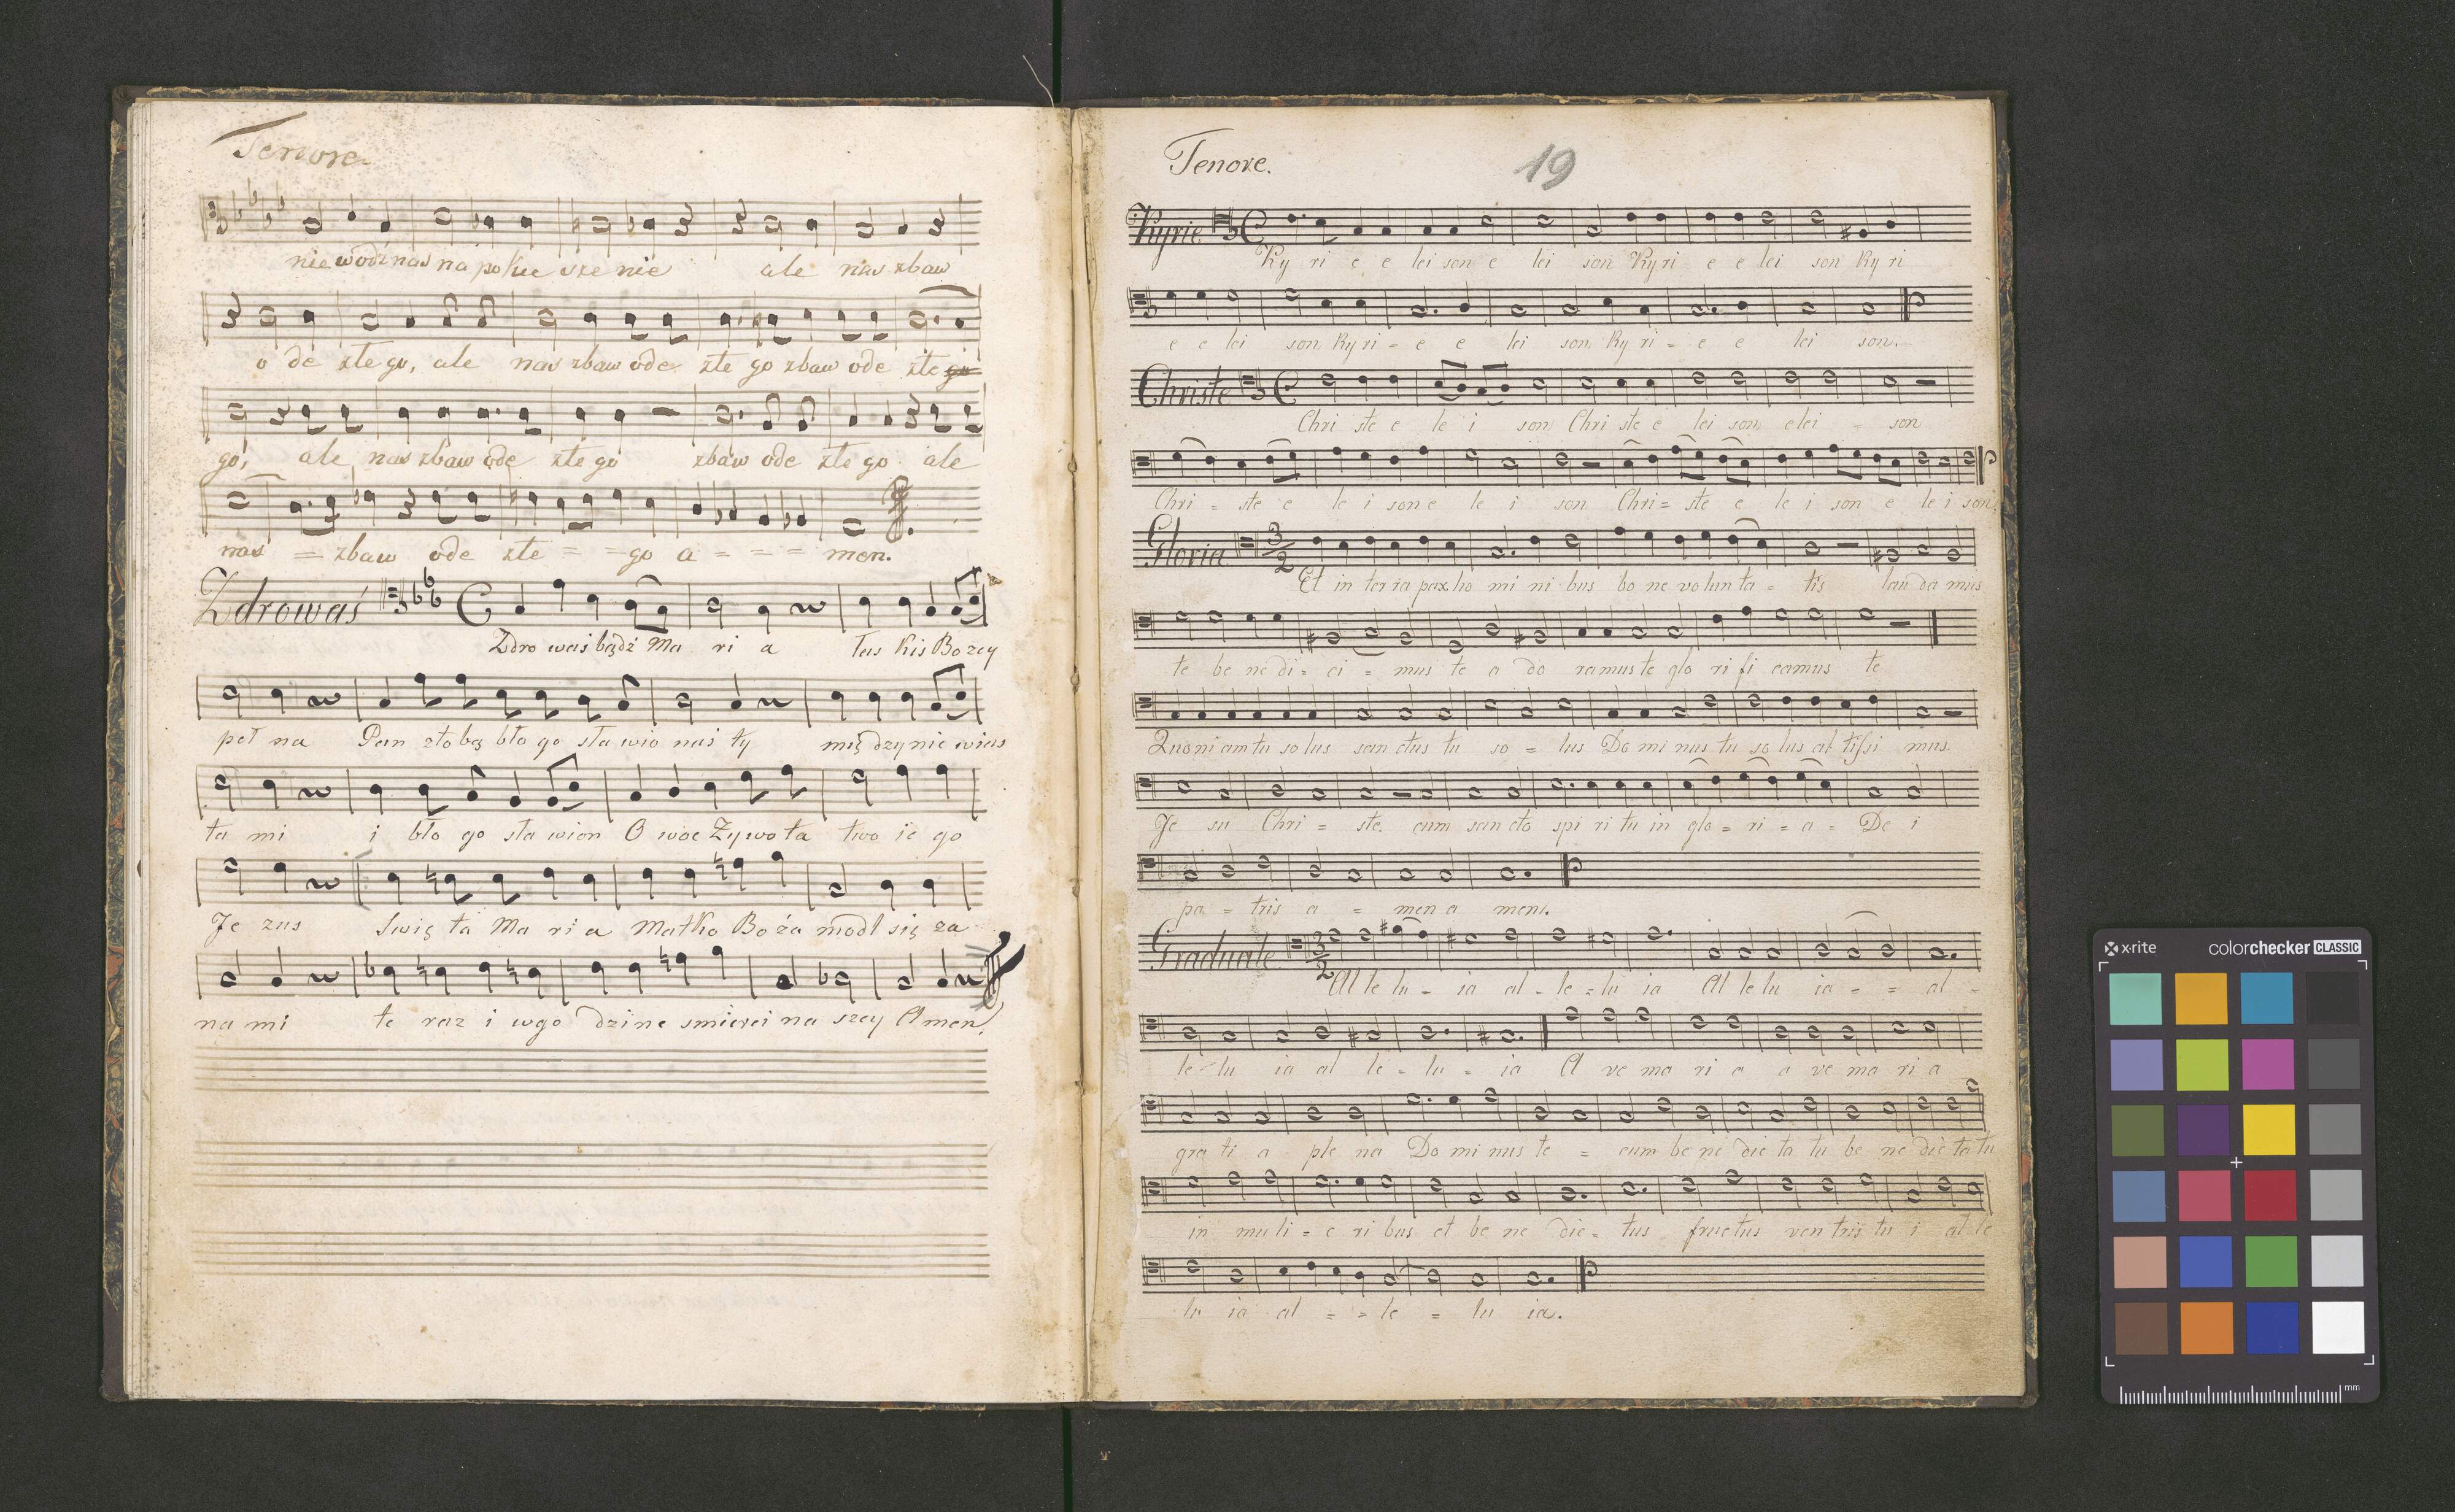 Tenore
nie wodź nas na poku sze nie ale nas zbaw
o de złe go, ale nas zbaw ode złe go zbaw ode złe go
go, ale nas zbaw ode złe go zbaw ode złe go ale
nas = zbaw ode złe = = go a = = = men.
Zdrowaś
Zdro waś bądź Ma ri a łas kiś Bo zey
peł na Pan zto bą bło go sła wio naś ty mię dzy nie wias
ta mi i bło go sła wion O woc Zy wo ta two ie go
Je zus Swię ta Ma ri a Matko Bo ża modl się za
na mi te raz i wgo dzine smierci na szey Amen.
Tenore.
19
Kyrie
Ky ri e e lei son e lei son Ky ri e e lei son Ky ri
e e lei son Ky ri = e e lei son Ky ri = e e lei son.
Christe
Chri ste e le i son Chri ste e lei son elei son
Chri = ste e le i son e le i son Chri = ste e le i son e le i son
Gloria 3/2
Et in terra pax ho mi ni bus bo ne volun ta = tis lau da mus
te be ne di = ci = mus te a do ramus te glo ri fi camus te
Quoniam tu so lus san ctus tu so = lus Do mi nus tu so lus al tissi mus.
Je su Chri = ste. cum san cto spi ri tu in glo = ri = a = De i
pa = tris a = men a men.
Graduale 3/2
Al le lu = ia al = le = lu ia Al le lu ia = = al =
le = lu ia al le = lu = ia A ve ma ri a a ve ma ri a
gra ti a ple na Do mi nus te = cum be ne dic ta tu be ne dic ta tu
in mu li = e ri bus et be ne dic = tus fructus ven tris tu i al le
lu ia al = = le = lu ia.
x-rite colorchecker CLASSIC
mm